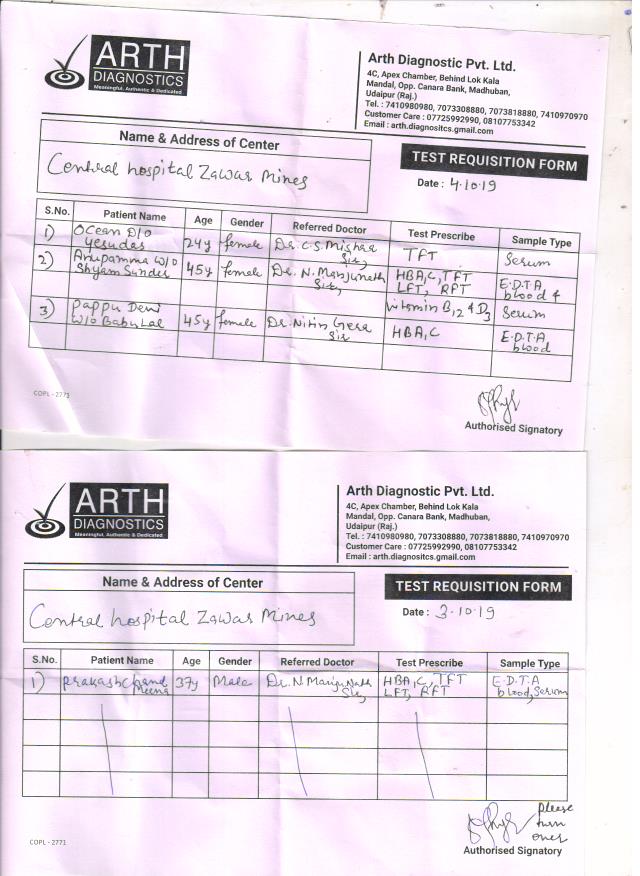 ARTH
DIAGNOSTICS
Meaningful, Authentic & Dedicated
Arth Diagnostic Pvt. Ltd.
4C, Apex Chamber, Behind Lok Kala
Mandal, Opp. Canara Bank, Madhuban,
Udaipur (Raj.)
Tel. : 7410980980, 7073308880, 7073818880, 7410970970
Customer Care : 07725992990, 08107753342
Email : arth.diagnositcs.gmail.com
Name & Address of Center
TEST REQUISITION FORM
Central hospital Zawar Mines
Date : 4.10.19
S.No. Patient Name Age Gender Referred Doctor Test Prescribe Sample Type
1) Ocean D/O Yesudas 24y female Dr. C.S. Mishra Sir, TFT Serum
2) Anupamma W/O Shyam Sunder 45y female Dr. N. Manjunath Sir, HBA,C, TFT LFT, RFT E.D.T.A, blood &
Vitamin B12 & D3 Serum
3) Pappu Devi W/O Babu Lal 45y female Dr. Nitin Gera Sir HBA,C E.D.T.A blood
COPL - 2771
Authorised Signatory
ARTH
DIAGNOSTICS
Meaningful, Authentic & Dedicated
Arth Diagnostic Pvt. Ltd.
4C, Apex Chamber, Behind Lok Kala
Mandal, Opp. Canara Bank, Madhuban,
Udaipur (Raj.)
Tel. : 7410980980, 7073308880, 7073818880, 7410970970
Customer Care : 07725992990, 08107753342
Email : arth.diagnositcs.gmail.com
Name & Address of Center
TEST REQUISITION FORM
Central hospital Zawar Mines
Date : 3.10.19
S.No. Patient Name Age Gender Referred Doctor Test Prescribe Sample Type
1) Prakash Chand Meena 37y Male Dr. N. Manju Nath Sir, HBA,C, TFT LFT, RFT E.D.T.A blood, Serum
please
turn
over
COPL - 2771
Authorised Signatory